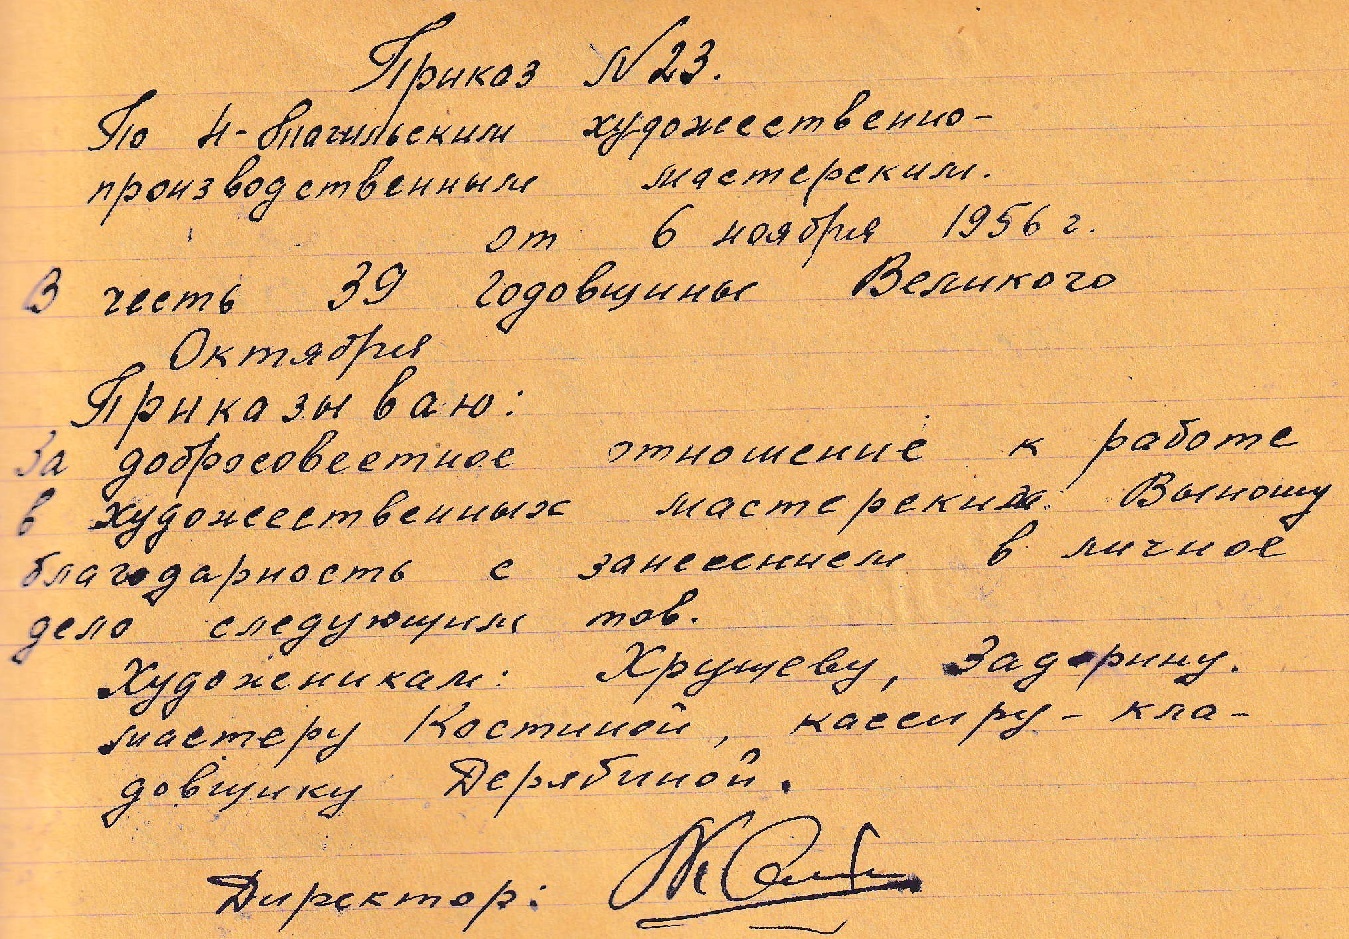 Приказ N 23.
По Н-Тагильским художественно-
производственным мастерским.
от 6 ноября 1956 г.
В честь 39 годовщины Великого
Октября
Приказываю:
За добросовестное отношение к работе
в художественных мастерских. Выношу
благодарность с занесением в личное
дело следующим тов.
Художникам: Хрущеву, Задорину.
мастеру Костиной, кассиру-кла-
довщику Дерябиной.
Директор: